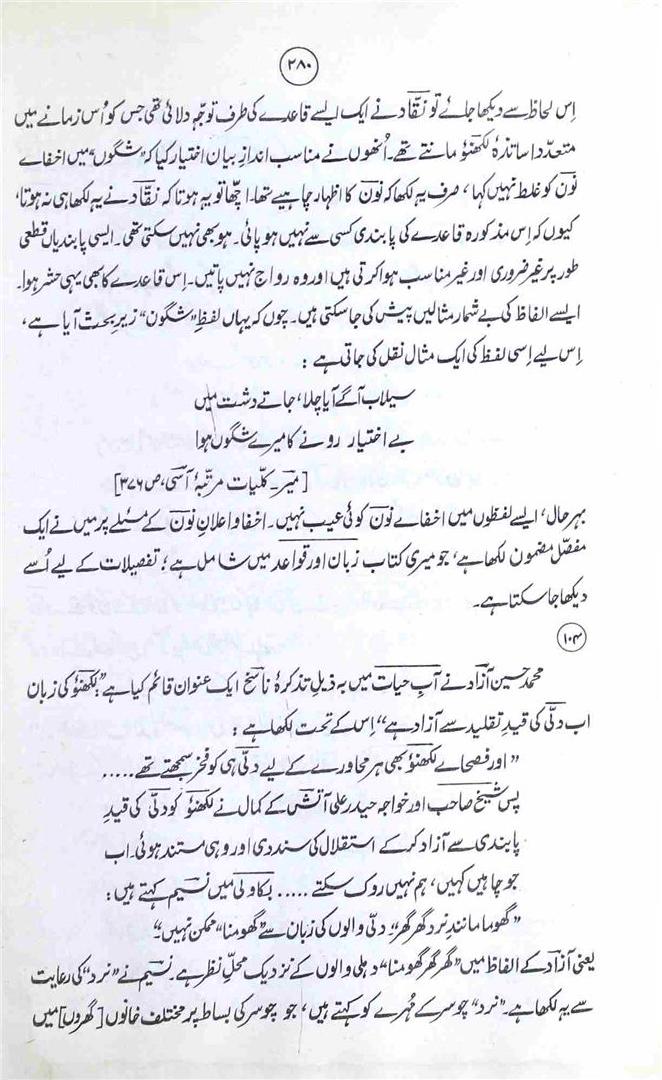 ۲۸۰
اِس لحاظ سے دیکھا جائے تو نقّاد نے ایک ایسے قاعدے کی طرف توجّہ دلائی تھی جس کو اُس زمانے میں
متعدد اساتذۂ لکھنؤ مانتے تھے۔ اُنھوں نے مناسب اندازِ بیان اختیار کیا کہ "شگوں" میں اخفاے
نون کو غلط نہیں کہا، صرف یہ لکھا کہ نون کا اظہار چاہیے تھا۔ اچھّا تو یہ ہوتا کہ نقّاد نے یہ لکھا ہی نہ ہوتا،
کیوں کہ اِس مذکورہ قاعدے کی پابندی کسی سے نہیں ہو پائی۔ ہو بھی نہیں سکتی تھی۔ ایسی پابندیاں قطعی
طور پر غیر ضروری اور غیر مناسب ہوا کرتی ہیں اور وہ رواج نہیں پاتیں۔ اِس قاعدے کا بھی یہی حشر ہوا۔
ایسے الفاظ کی بے شمار مثالیں پیش کی جا سکتی ہیں۔ چوں کہ یہاں لفظِ "شگون" زیرِ بحث آیا ہے،
اِس لیے اِسی لفظ کی ایک مثال نقل کی جاتی ہے :
سیلاب آگے آیا چلا، جاتے دشت میں
بے اختیار رونے کا میرے شگوں ہوا
[میر۔ کلّیات مرتّبۂ آسی، ص ۳۷۶]
بہر حال، ایسے لفظوں میں اخفاے نون کوئی عیب نہیں۔ اخفا و اعلانِ نون کے مسئلے پر میں نے ایک
مفصّل مضمون لکھا ہے، جو میری کتاب زبان اور قواعد میں شامل ہے؛ تفصیلات کے لیے اُسے
دیکھا جا سکتا ہے۔
۱۰۴
محمد حسین آزاد نے آبِ حیات میں بہ ذیلِ تذکرۂ ناسخ ایک عنوان قائم کیا ہے "لکھنؤ کی زبان
اب دلّی کی قیدِ تقلید سے آزاد ہے" اِس کے تحت لکھا ہے :
"اور فصحاے لکھنؤ بھی ہر محاورے کے لیے دلّی ہی کو فخر سمجھتے تھے .....
پس شیخ صاحب اور خواجہ حیدر علی آتش کے کمال نے لکھنؤ کو دلّی کی قیدِ
پابندی سے آزاد کر کے استقلال کی سند دی اور وہی مستند ہوئی۔ اب
جو چاہیں کہیں، ہم نہیں روک سکتے ..... بکاولی میں نسیم کہتے ہیں :
"گھوما مانندِ نرد گھر گھر"۔ دلّی والوں کی زبان سے "گھومنا" ممکن نہیں"۔
یعنی آزاد کے الفاظ میں "گھر گھر گھومنا" دہلی والوں کے نزدیک محلِّ نظر ہے۔ نسیم نے "نرد" کی رعایت
سے یہ لکھا ہے۔ "نرد" چوسر کے مُہرے کو کہتے ہیں، جو چوسر کی بساط پر مختلف خانوں [گھروں] میں